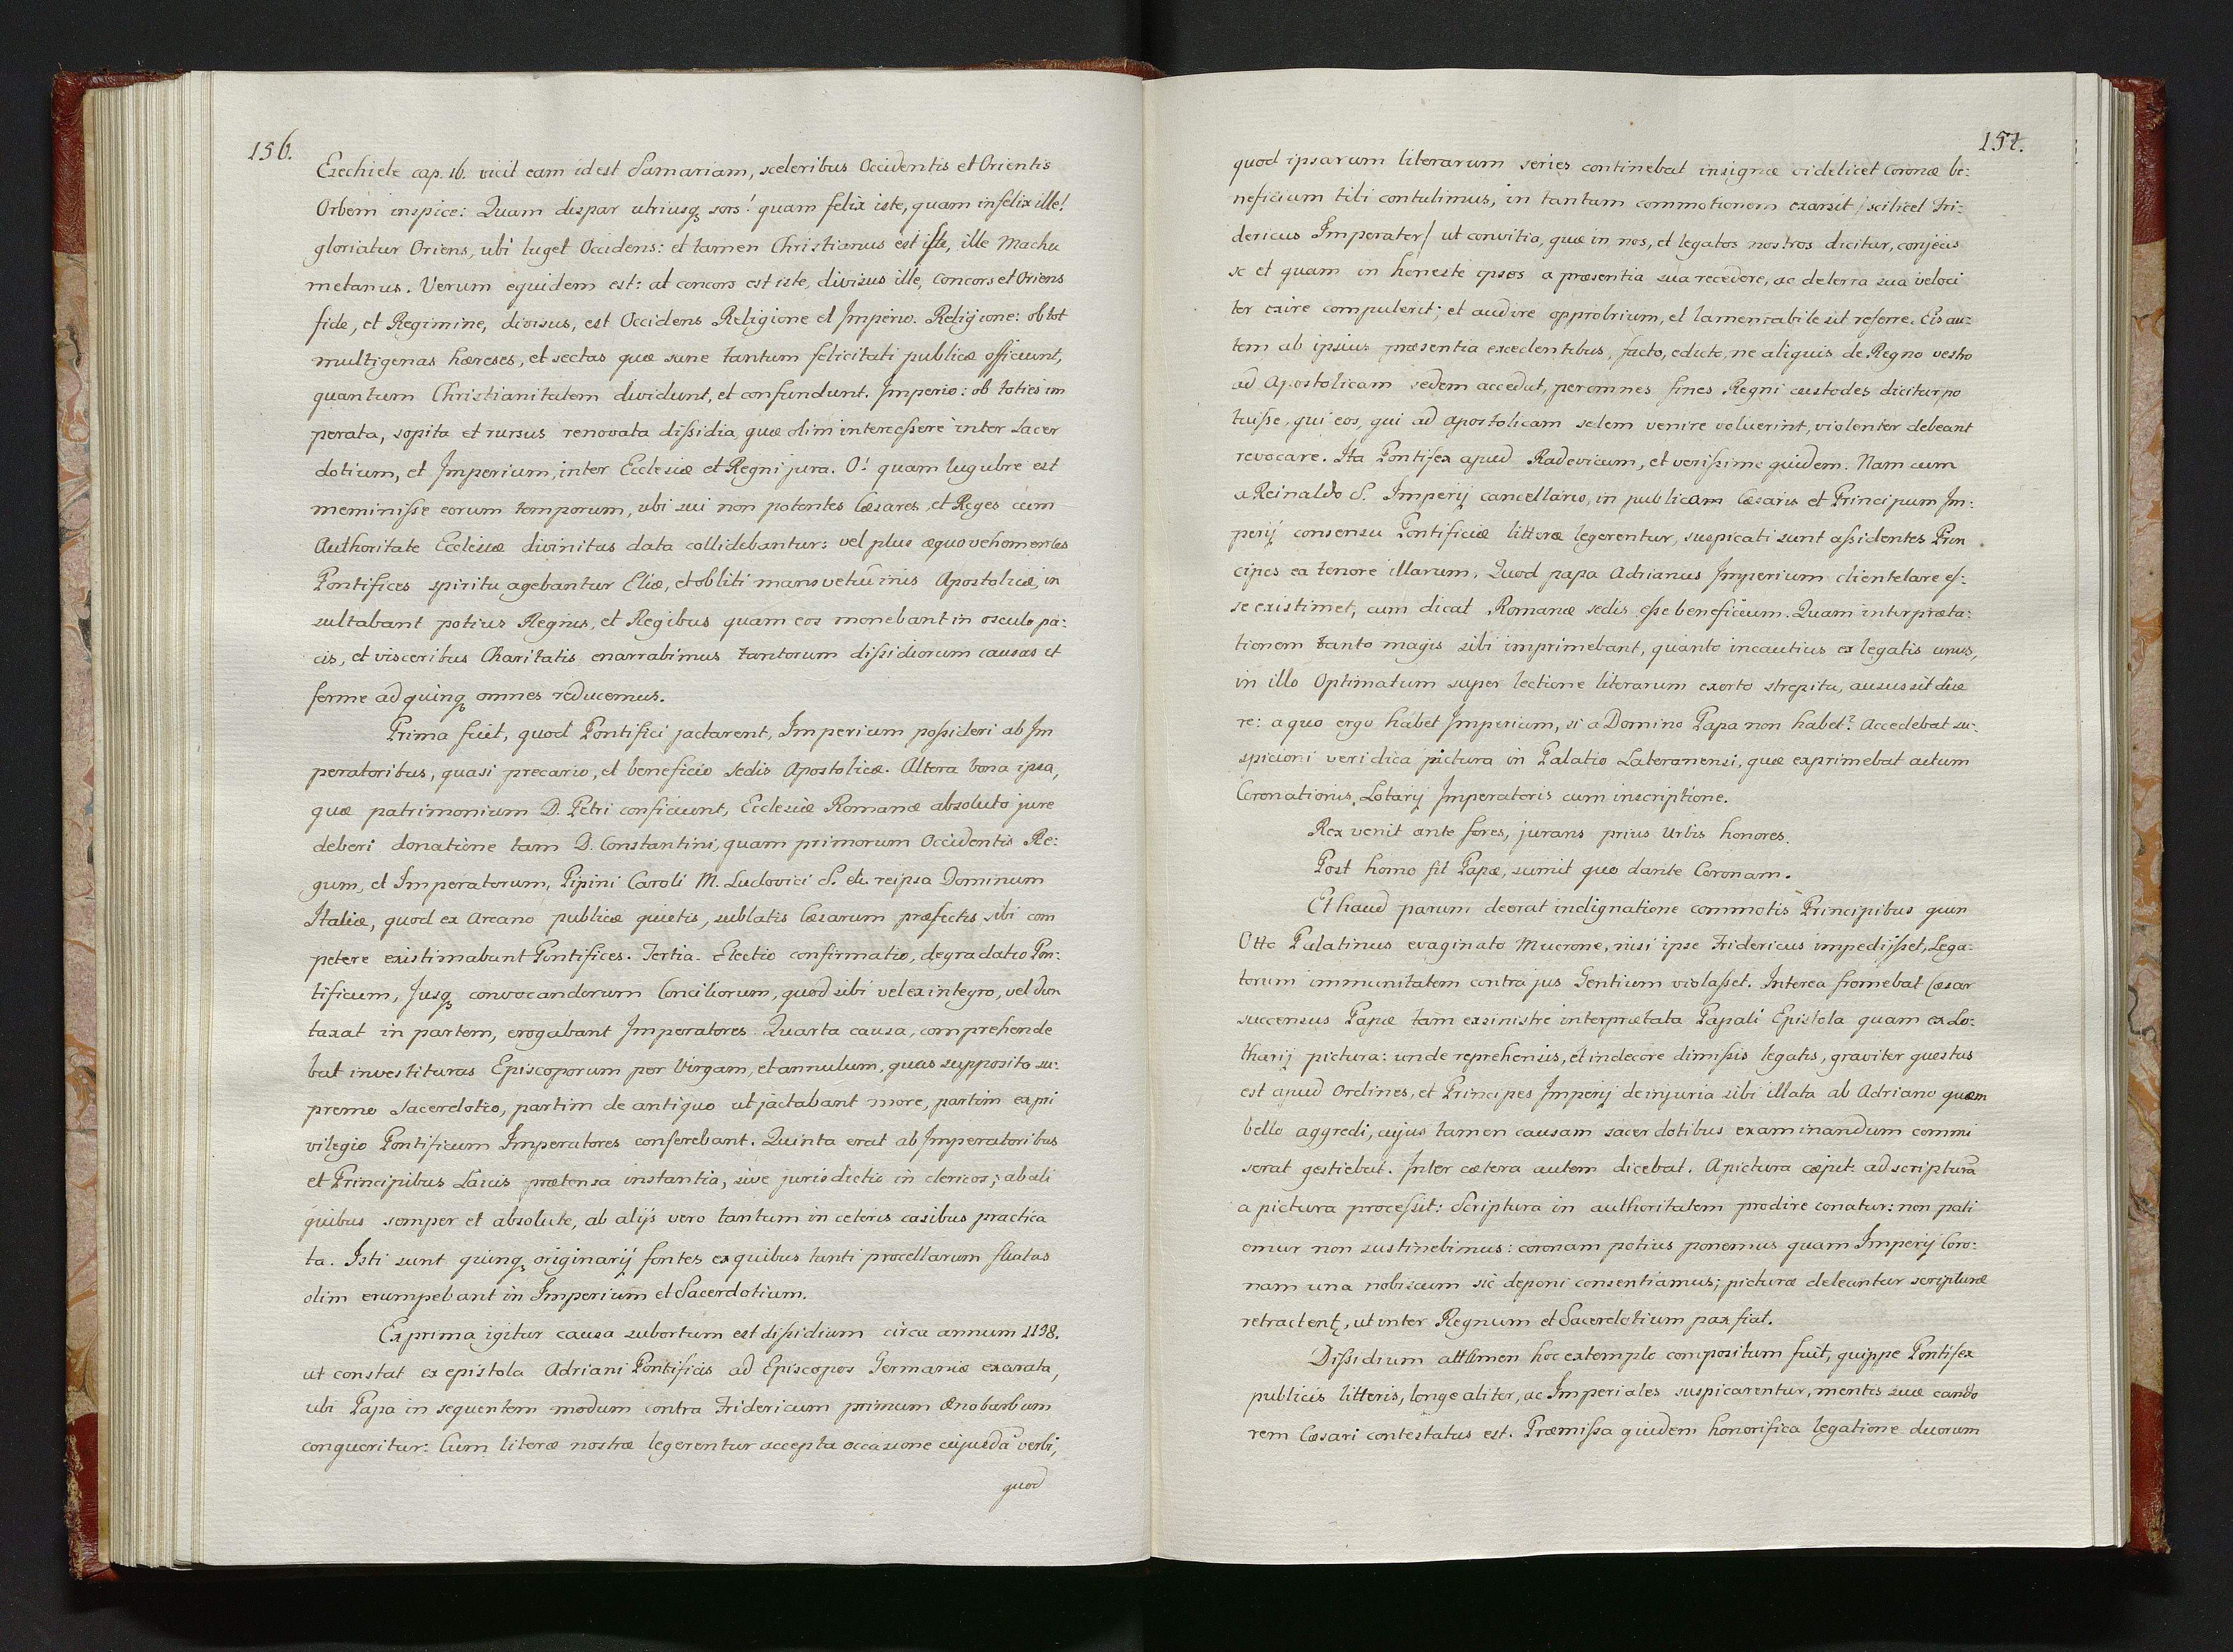 156.
Ezechiele cap. 16. vicit eam id est Samariam, sceleribus Occidentis et Orientis
Orbem inspice: Quam dispar utriusqꝫ sors! quam felix iste, quam infelix ille!
gloriatur Oriens, ubi luget Occidens: et tamen Christianus est iste, ille Machu
metanus. Verum equidem est: at concors est iste, divisus ille, concors et Oriens
fide, et Regimine, divisus, est Occidens Religione et Imperio. Religione: ob tot
multigenas hæreses, et sectas quæ sane tantum felicitati publicæ officiunt,
quantum Christianitatem dividunt, et confundunt. Imperio: ob toties im
perata, sopita et rursus renovata dissidia, quæ olim intercessere inter Sacer
dotium, et Imperium, inter Ecclesiæ et Regni jura. O! quam lugubre est
meminisse eorum temporum, ubi sui non potentes Cæsares, et Reges cum
Authoritate Ecclesiæ divinitus data collidebantur: vel plus æquo vehementes
Pontifices spiritu agebantur Eliæ, et obliti mansvetudinis Apostolicæ, in
sultabant potius Regnis, et Regibus quam eos monebant in osculo pa:
cis, et visceribus Charitatis enarrabimus tantorum dissidiorum causas et
ferme ad quinqꝫ omnes reducemus.
Prima fuit, quod Pontifici jactarent, Imperium possideri ab Im
peratoribus, quasi precario, et beneficio Sedis Apostolicæ. Altera bona ipsa,
quæ patrimonium D. Petri conficiunt, Ecclesiæ Romanæ absoluto jure
deberi donatione tam D. Constantini, quam primorum Occidentis Re:
gum, et Imperatorum, Pipini Caroli M. Ludovici S. etc. reipsa Dominum
Italiæ, quod ex Arcano publicæ quietis, sublatis Cæsarum præfectis sibi com
petere existimabant Pontifices. Tertia. Electio confirmatio, degradatio Pon:
tificum, Jusqꝫ convocandorum Conciliorum, quod sibi vel ex integro, vel dun
taxat in partem, erogabant Imperatores. Quarta causa, comprehende
bat investituras Episcoporum per Virgam, et annulum, quas supposito su:
premo Sacerdotio, partim de antiquo ut jactabant more, partim ex pri
vilegio Pontificum Imperatores conferebant. Quinta erat ab Imperatoribus
et Principibus Laicis prætensa instantia, sive jurisdictio in clericos; ab ali
quibus semper et absolute, ab alijs vero tantum in ceteris casibus practica
ta. Isti sunt quinqꝫ originarij fontes ex quibus tanti procellarum fluctus
olim erumpebant in Imperium et Sacerdotium.
Ex prima igitur causa subortum est dissidium circa annum 1158.
ut constat ex epistola Adriani Pontificis ad Episcopos Germaniæ exarata,
ubi Papa in sequentem modum contra Fridericum primum Ænobarbum
conqueritur: Cum literæ nostræ legerentur accepta occasione cujusdã verbi,
quod
157.
quod ipsarum literarum series continebat insignæ videlicet Coronæ be:
neficium tibi contulimus, in tantum commotionem exarsit /scilicet Fri:
dericus Imperator/ ut convitia, quæ in nos, et legatos nostros dicitur, conjecis
se et quam in honeste ipsos a præsentia sua recedere, ac de terra sua veloci
ter exire compulerit; et audire opprobrium, et lamentabile sit referre. Eis au:
tem ab ipsius præsentia excedentibus, facto, edicto, ne aliquis de Regno vestro
ad Apostolicam sedem accedat, per omnes fines Regni custodes dicitur po
tuisse, qui eos, qui ad apostolicam sedem venire voluerint, violenter debeant
revocare. Ita Pontifex apud Radevicum, et verissime quidem. Nam cum
a Reinaldo S. Imperij cancellario, in publicam Cæsaris et Principum Im:
perij consensu Pontificiæ litteræ legerentur, suspicati sunt assidentes Prin
cipes ex tenore illarum, Quod papa Adrianus Imperium clientelare es:
se existimet, cum dicat Romanæ sedis esse beneficium. Quam interpræta:
tionem tanto magis sibi imprimebant, quanto incautius ex legatis unus,
in illo Optimatum super lectione literarum exorto strepitu, ausus sit dice
re: a quo ergo habet Imperium, si a Domino Papa non habet? Accedebat su:
spicioni veridica pictura in Palatio Lateranensi, quæ exprimebat actum
Coronationis, Lotarij Imperatoris cum inscriptione.
Rex venit ante fores, jurans prius Urbis honores.
Post homo fit Papæ, sumit quo dante Coronam.
Et haud parum deerat indignatione commotis Principibus quin
Otto Palatinus evaginato Mucrone, nisi ipse Fridericus impedijsset, Lega:
torum immunitatem contra jus Gentium violasset. Interea fremebat Cæsar
succensus Papæ tam ex sinistre interprætata Papali Epistola quam ex Lo:
tharij pictura: unde reprehensis, et indecore dimissis legatis, graviter questus
est apud Ordines, et Principes Imperij de injuria sibi illata ab Adriano quem
bello aggredi, cujus tamen causam sacerdotibus examinandum commi
serat gestiebat. Inter cætera autem dicebat. A pictura cæpit: ad scripturã
a pictura processit: Scriptura in authoritatem prodire conatur: non pati
emur non sustinebimus: coronam potius ponemus quam Imperij Coro:
nam una nobiscum sic deponi consentiamus; picturæ deleantur scripturæ
retractent, ut inter Regnum et Sacerdotium pax fiat.
Dissidium attamen hoc extemplo compositum fuit, quippe Pontifex
publicis litteris, longe aliter, ac Imperiales suspicarentur, mentis suæ cando
rem Cæsari contestatus est. Præmissa quidem honorifica legatione duorum